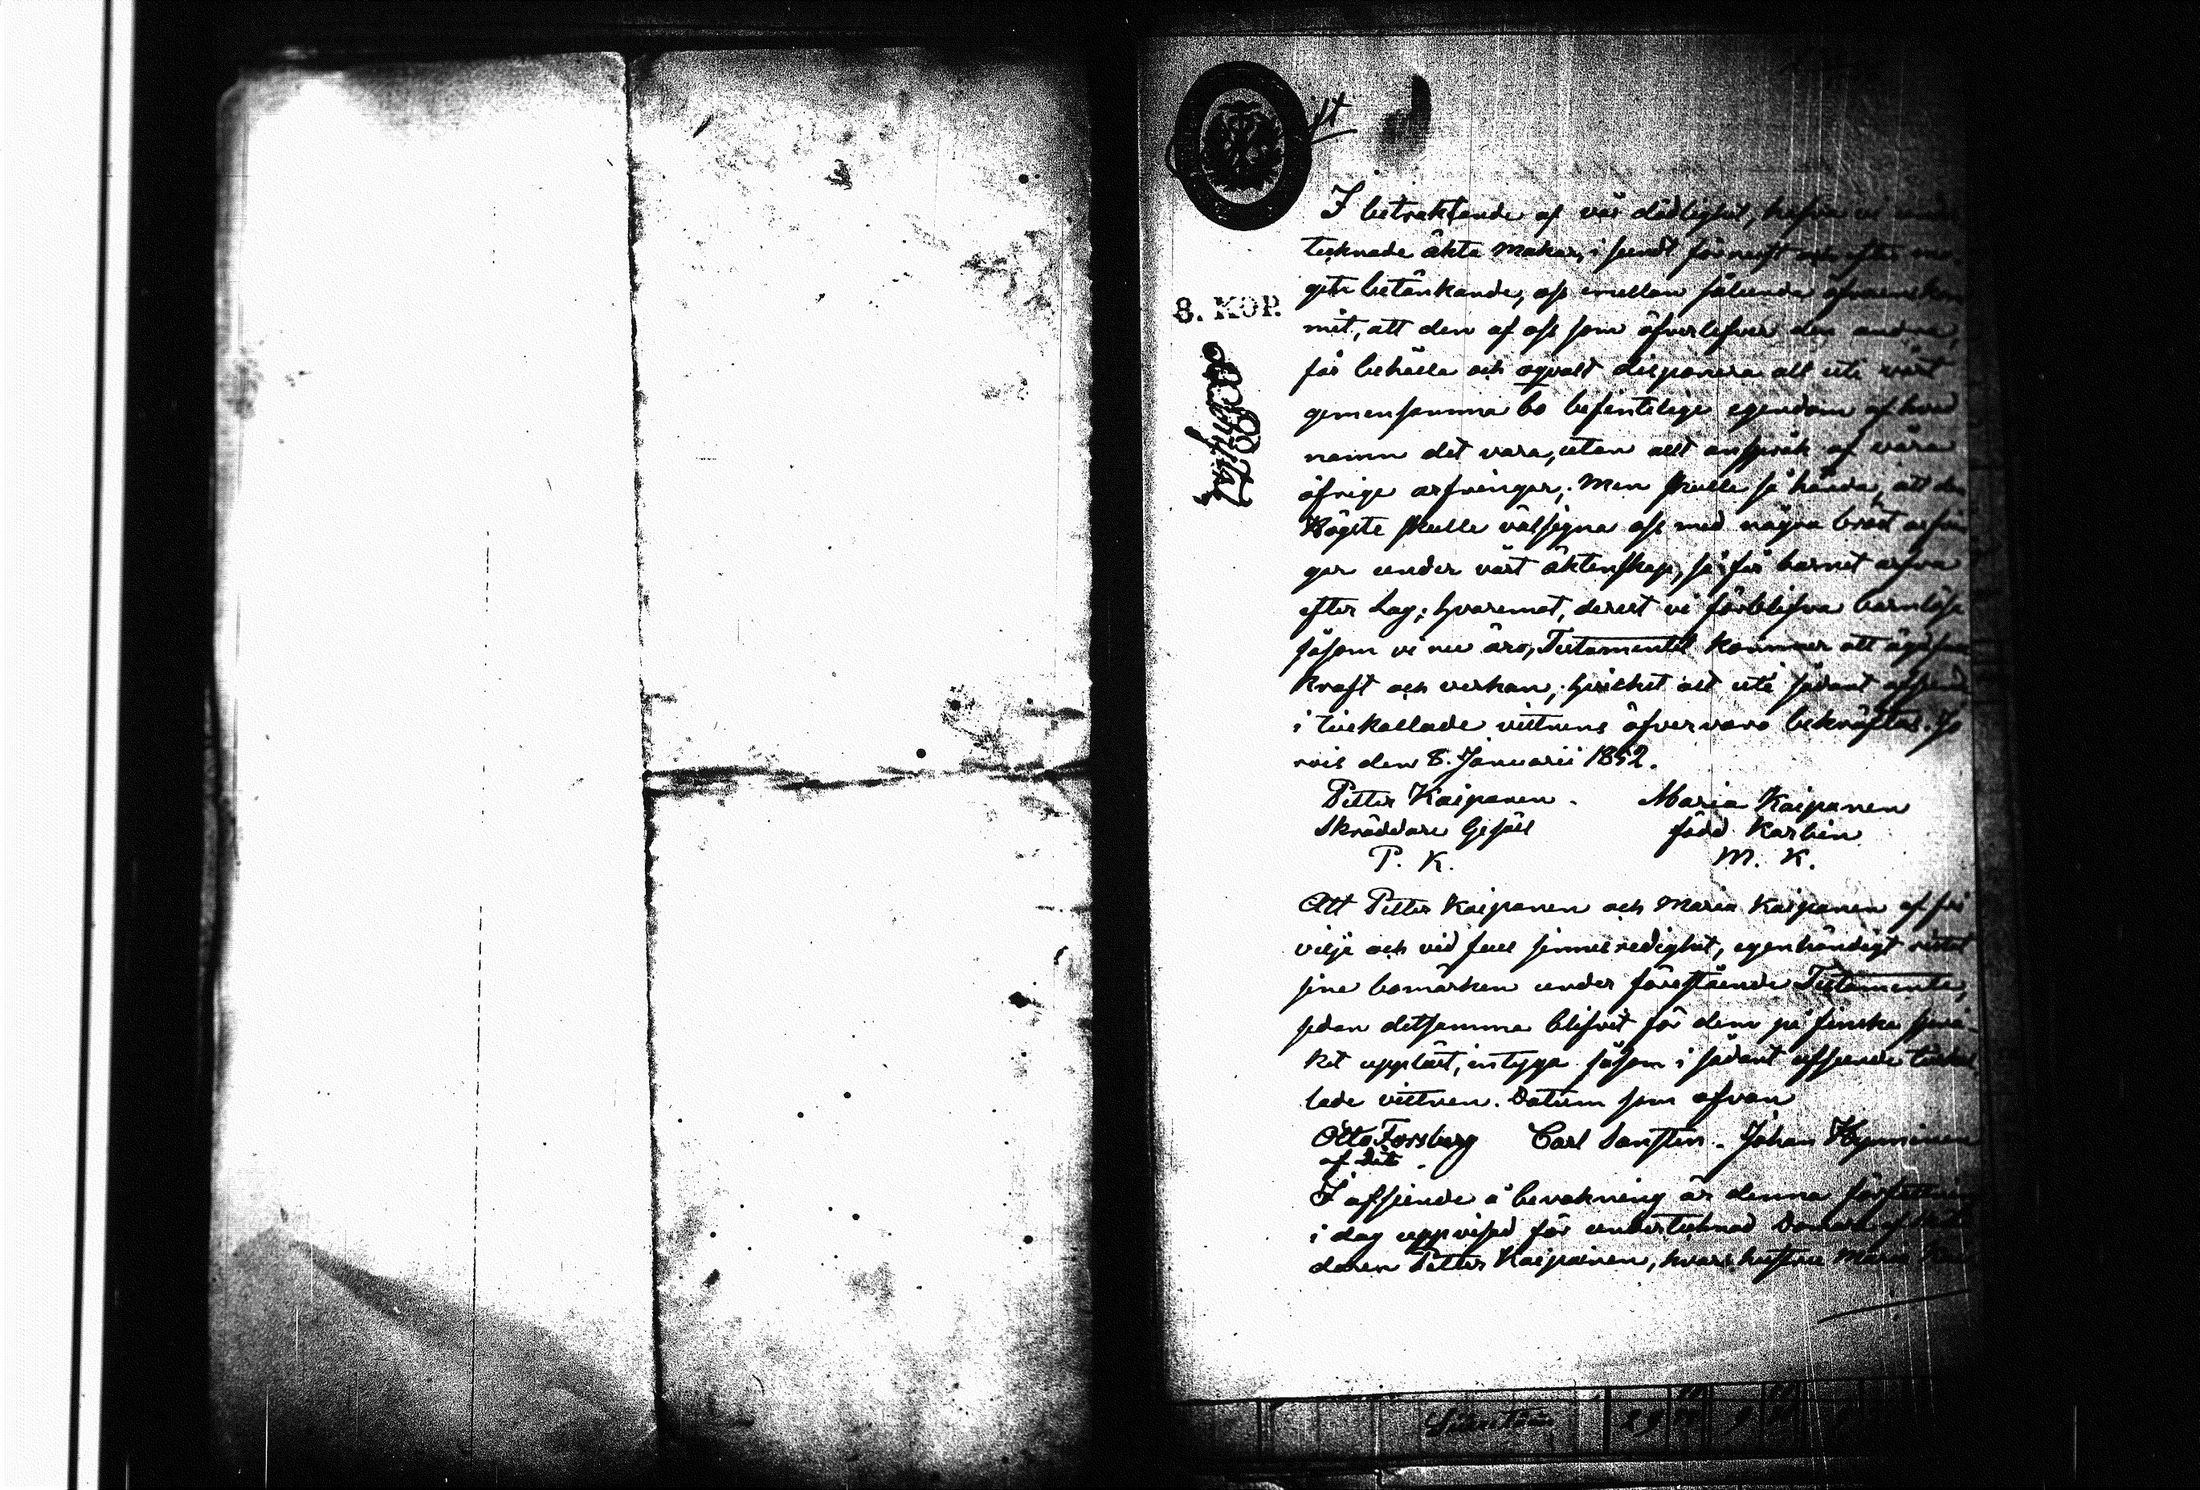 I betraktande af vår dödlighet, hafva vi under
tecknade äkta makar, i sundt förnuft och efter mo-
get betänkande, oss emellan sålunda öfverenskom
mit, att den af oss som öfverlefver den andra,
får behålla och oqvalt disponera all uti vårt
gemensamma bo befintelige egendom af hvad
namn det vara, utan allt anspråk af våra
öfrige arfvingar; Men skulle så hända, att den
Högste skulle välsigna oss med några bröst arfvin
gar under vårt äktenskap, så får barnet arfva
efter Lag; hvaremot, derest vi förblifva barnlösa
såsom vi nu äro, Testamentet kommer att äga sin
kraft och verkan; hvilket allt uti sådant afseende
i tillkallade vittnens öfvervaro bekräftas. Jo
rois den 8. Januarii 1852.
Petter Kaipanen. Maria Kaipanen
Skräddare Gesäll född Karlin
P. K. M. K.
Att Petter Kaipanen och Maria Kaipanen af fri
vilje och vid full sinnesredighet, egenhändigt ritat
sine bomärken under förestående Testamente,
sedan detsamma blifvit för dem på finska språ-
ket uppläst, intyga såsom i sådant afseende tillkal
lade vittnen. Datum som ofvan
Otto Forsberg Carl Sansten. Johan Hyminen
I afseende å bevakning är denna författning
i dag uppvisad för undertecknad Domare af
Petter Kaipainen, hvars hustru Maria
8. KOP.